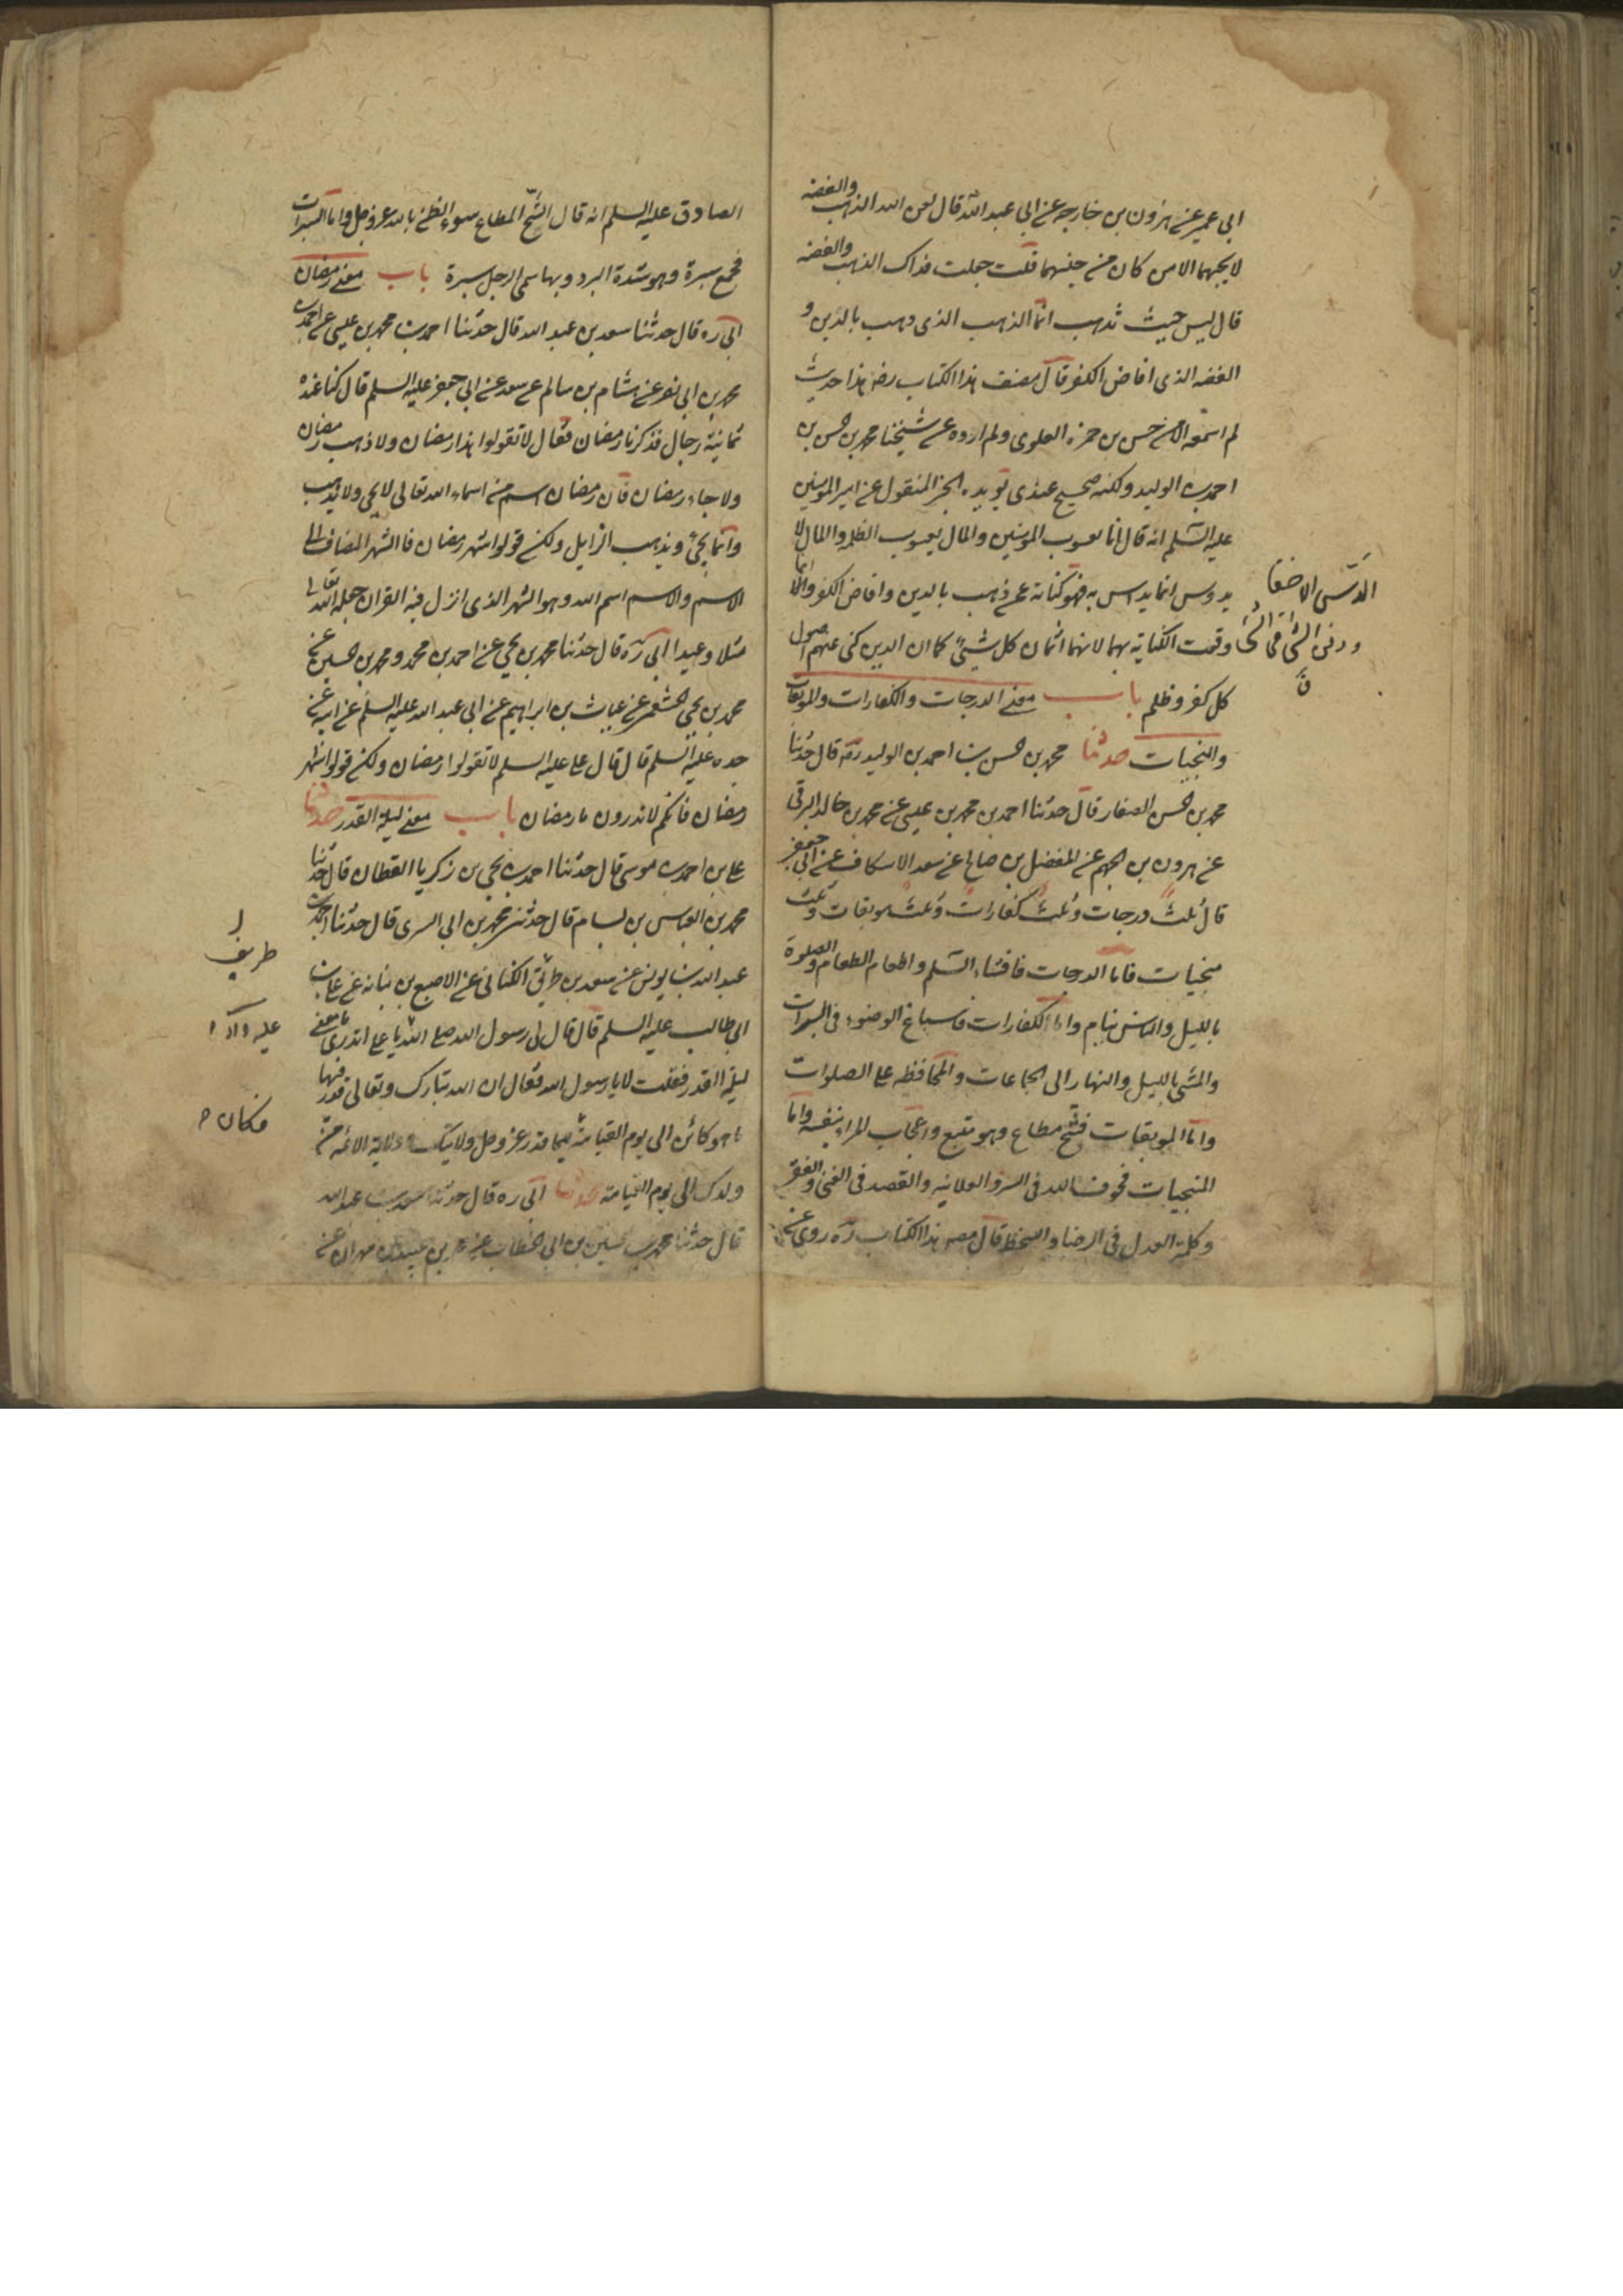 ابی عمیر عن هرون بن خارجه عن ابی عبد الله قال لعن الله الذهب والفضه
لا یحبهما الا من کان من جنسهما قلت جعلت فداک الذهب والفضه
قال لیس حیث تذهب انما الذهب الذی ذهب بالدین و
الفضه الذی افاض الکفر قال مصنف هذا الکتاب رض هذا حدیث
لم اسمعه الا من حسن بن حمزه العلوی ولم اروه عن شیخنا محمد بن حسن بن
احمد بن الولید ولکنه صحیح عندی یؤیده الخبر المنقول عن امیر المومنین
علیه السلم انه قال انا یعسوب المومنین والمال یعسوب الظلمه والمال لا
یدوس انما یداس به فهو کنایة عن ذهب بالدین وافاض الکفر وانما
وقعت الکنایة بهما لانهما اثمان کل شیئ کما ان الذین کنی عنهم اصول
کل کفر وظلم باب معنی الدرجات والکفارات والموبقات
والمنجیات حدثنا محمد بن حسن بن احمد بن الولید ره قال حدثنا
محمد بن حسن الصفار قال حدثنا احمد بن محمد بن عیسی عن محمد بن خالد البرقی
عن هرون بن الجهم عن المفضل بن صالح عن سعد الاسکاف عن ابی جعفر
قال ثلث درجات وثلث کفارات وثلث موبقات وثلث
منجیات فاما الدرجات فافشاء السلم واطعام الطعام والصلوة
باللیل والناس نیام واما الکفارات فاسباغ الوضوء فی السبرات
والمشی باللیل والنهار الی الجماعات والمحافظه علی الصلوات
واما الموبقات فشح مطاع وهو متبع واعجاب المرء بنفسه واما
المنجیات فخوف الله فی السر والعلانیه والقصد فی الغنی والفقر
وکلمة العدل فی الرضا والسخط قال مصه هذا الکتاب ره روی عن
الدس الاخفا
ودفن الشئ تحت
الصادق علیه السلم انه قال الشح المطاع سوء الظن بالله عز وجل واما السبرات
فجمع سبرة وهو شدة البرد وبها سمی الرجل سبرة باب معنی رمضان
ابی ره قال حدثنا سعد بن عبد الله قال حدثنا احمد بن محمد بن عیسی عن احمد بن
محمد بن ابی نصر عن هشام بن سالم عن سعد عن ابی جعفر علیه السلم قال کنا عنده
ثمانیة رجال فذکرنا رمضان فقال لا تقولوا هذا رمضان ولا ذهب رمضان
ولا جاء رمضان فان رمضان اسم من اسماء الله تعالی لا یجی ولا یذهب
وانما یجیئ ویذهب الزایل ولکن قولوا شهر رمضان فالشهر المضاف الی
الاسم والاسم اسم الله وهو الشهر الذی انزل فیه القران جعله الله تعالی
مثلا وعیدا ابی ره قال حدثنا محمد بن یحیی عن احمد بن محمد ومحمد بن حسین عن
محمد بن یحیی الخثعمی عن غیاث بن ابراهیم عن ابی عبد الله علیه السلم عن ابیه عن
جده علیه السلم قال قال علی علیه السلم لا تقولوا رمضان ولکن قولوا شهر
رمضان فانکم لا تدرون ما رمضان باب معنی لیلة القدر حدثنا
علی بن احمد بن موسی قال حدثنا احمد بن یحیی بن زکریا القطان قال حدثنا
محمد بن العباس بن بسام قال حدثنی محمد بن ابی السری قال حدثنا احمد بن
عبد الله بن یونس عن سعد بن طریق الکنانی عن الاصبغ بن نباته عن علی بن
ابی طالب علیه السلم قال قال لی رسول الله صلی الله یا علی اتدری ما معنی
لیلة القدر فقلت لا یا رسول الله فقال ان الله تبارک وتعالی قدر فیها
ما هو کائن الی یوم القیامة فیما قدر عز وجل ولایتک وولایة الائمه من
ولدک الی یوم القیامة حدثنا ابی ره قال حدثنا سعد بن عبد الله
قال حدثنا محمد بن حسین بن ابی الخطاب عن محمد بن عبید بن مهران عن
طریف
علیه وآله
فکان